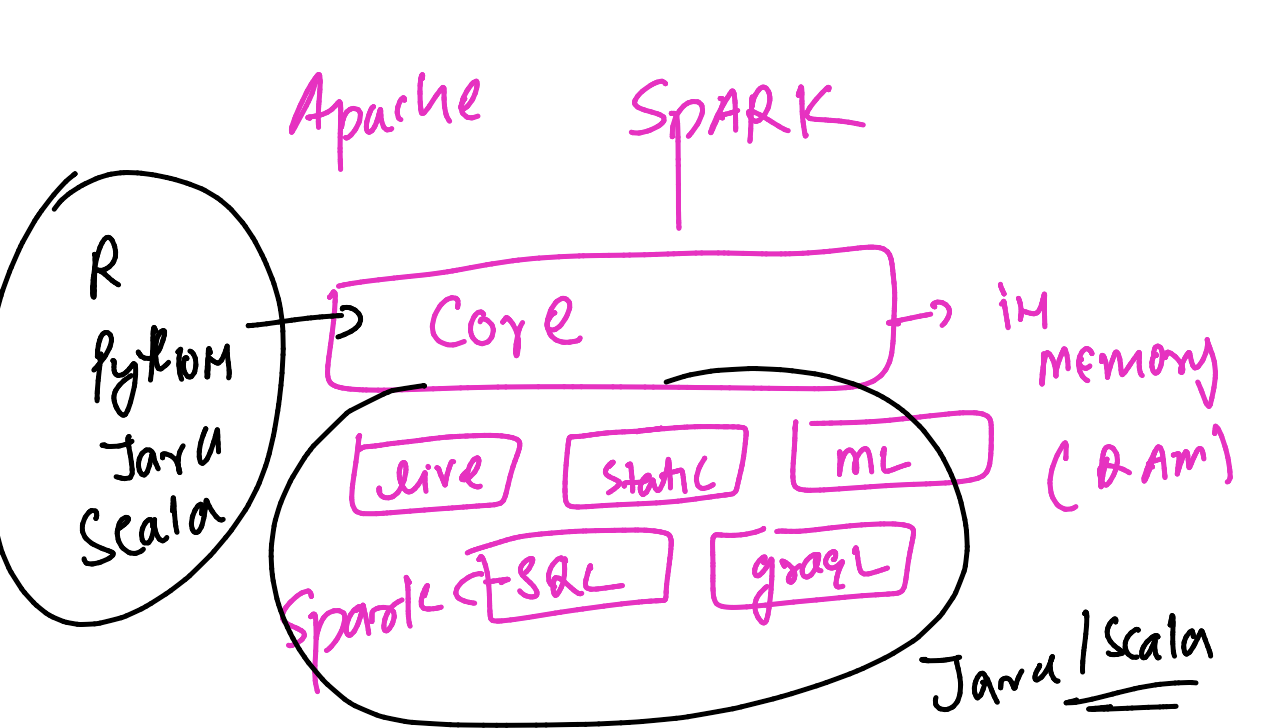 Apache SPARK
R
Python
Java
Scala
Core
in
memory
(RAM)
live
static
ML
Spark
SQL
graqL
Java / Scala